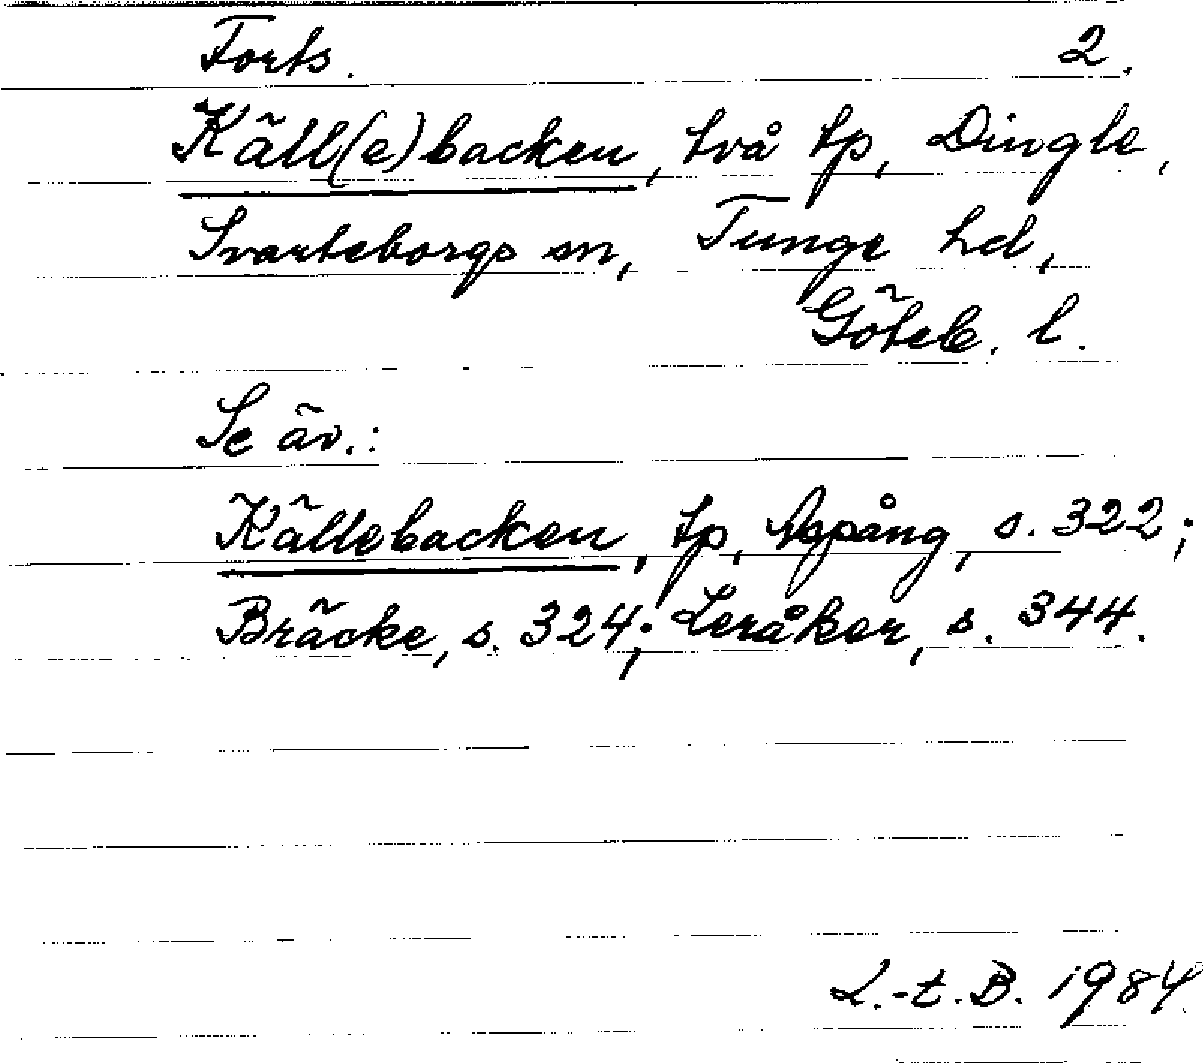 Forts. 2.
Käll(e)backen, två tp, Dingle,
Svarteborgs sn, Tunge hd,
Göteb. l.
Se äv.:
Källebacken, tp, Aspång, s. 322;
Bräcke, s. 324; Leråker, s. 344.
L.-t.B. 1984